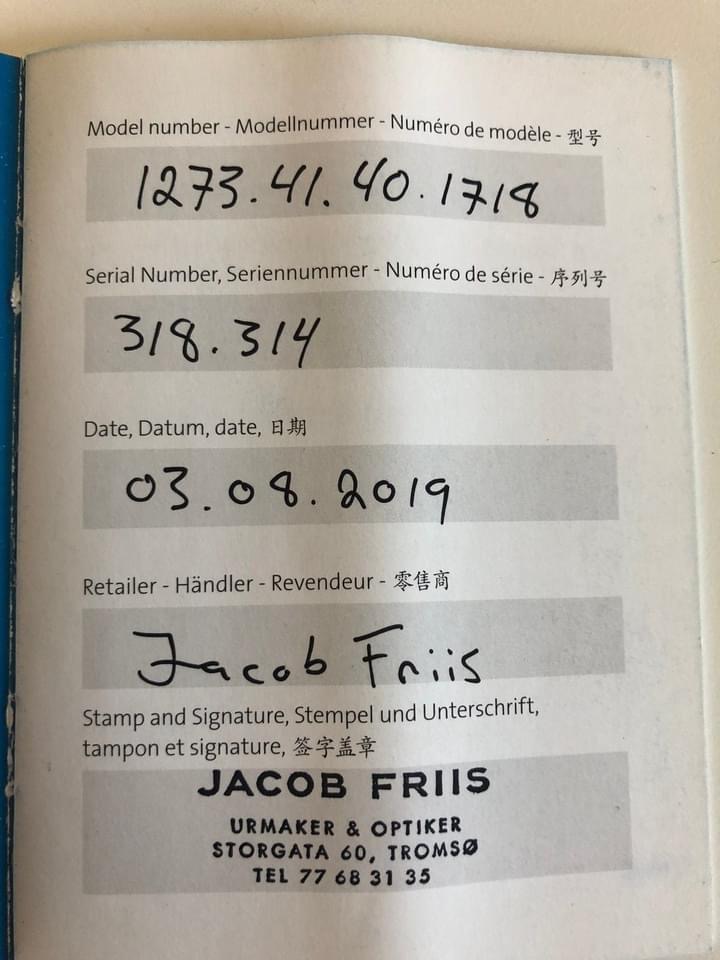 Model number - Modellnummer - Numéro de modèle - 型号
1273.41.40.1718
Serial Number, Seriennummer - Numéro de série - 序列号
318.314
Date, Datum, date, 日期
03.08.2019
Retailer - Händler - Revendeur - 零售商
Jacob Friis
Stamp and Signature, Stempel und Unterschrift,
tampon et signature, 签字盖章
JACOB FRIIS
URMAKER & OPTIKER
STORGATA 60, TROMSØ
TEL 77 68 31 35